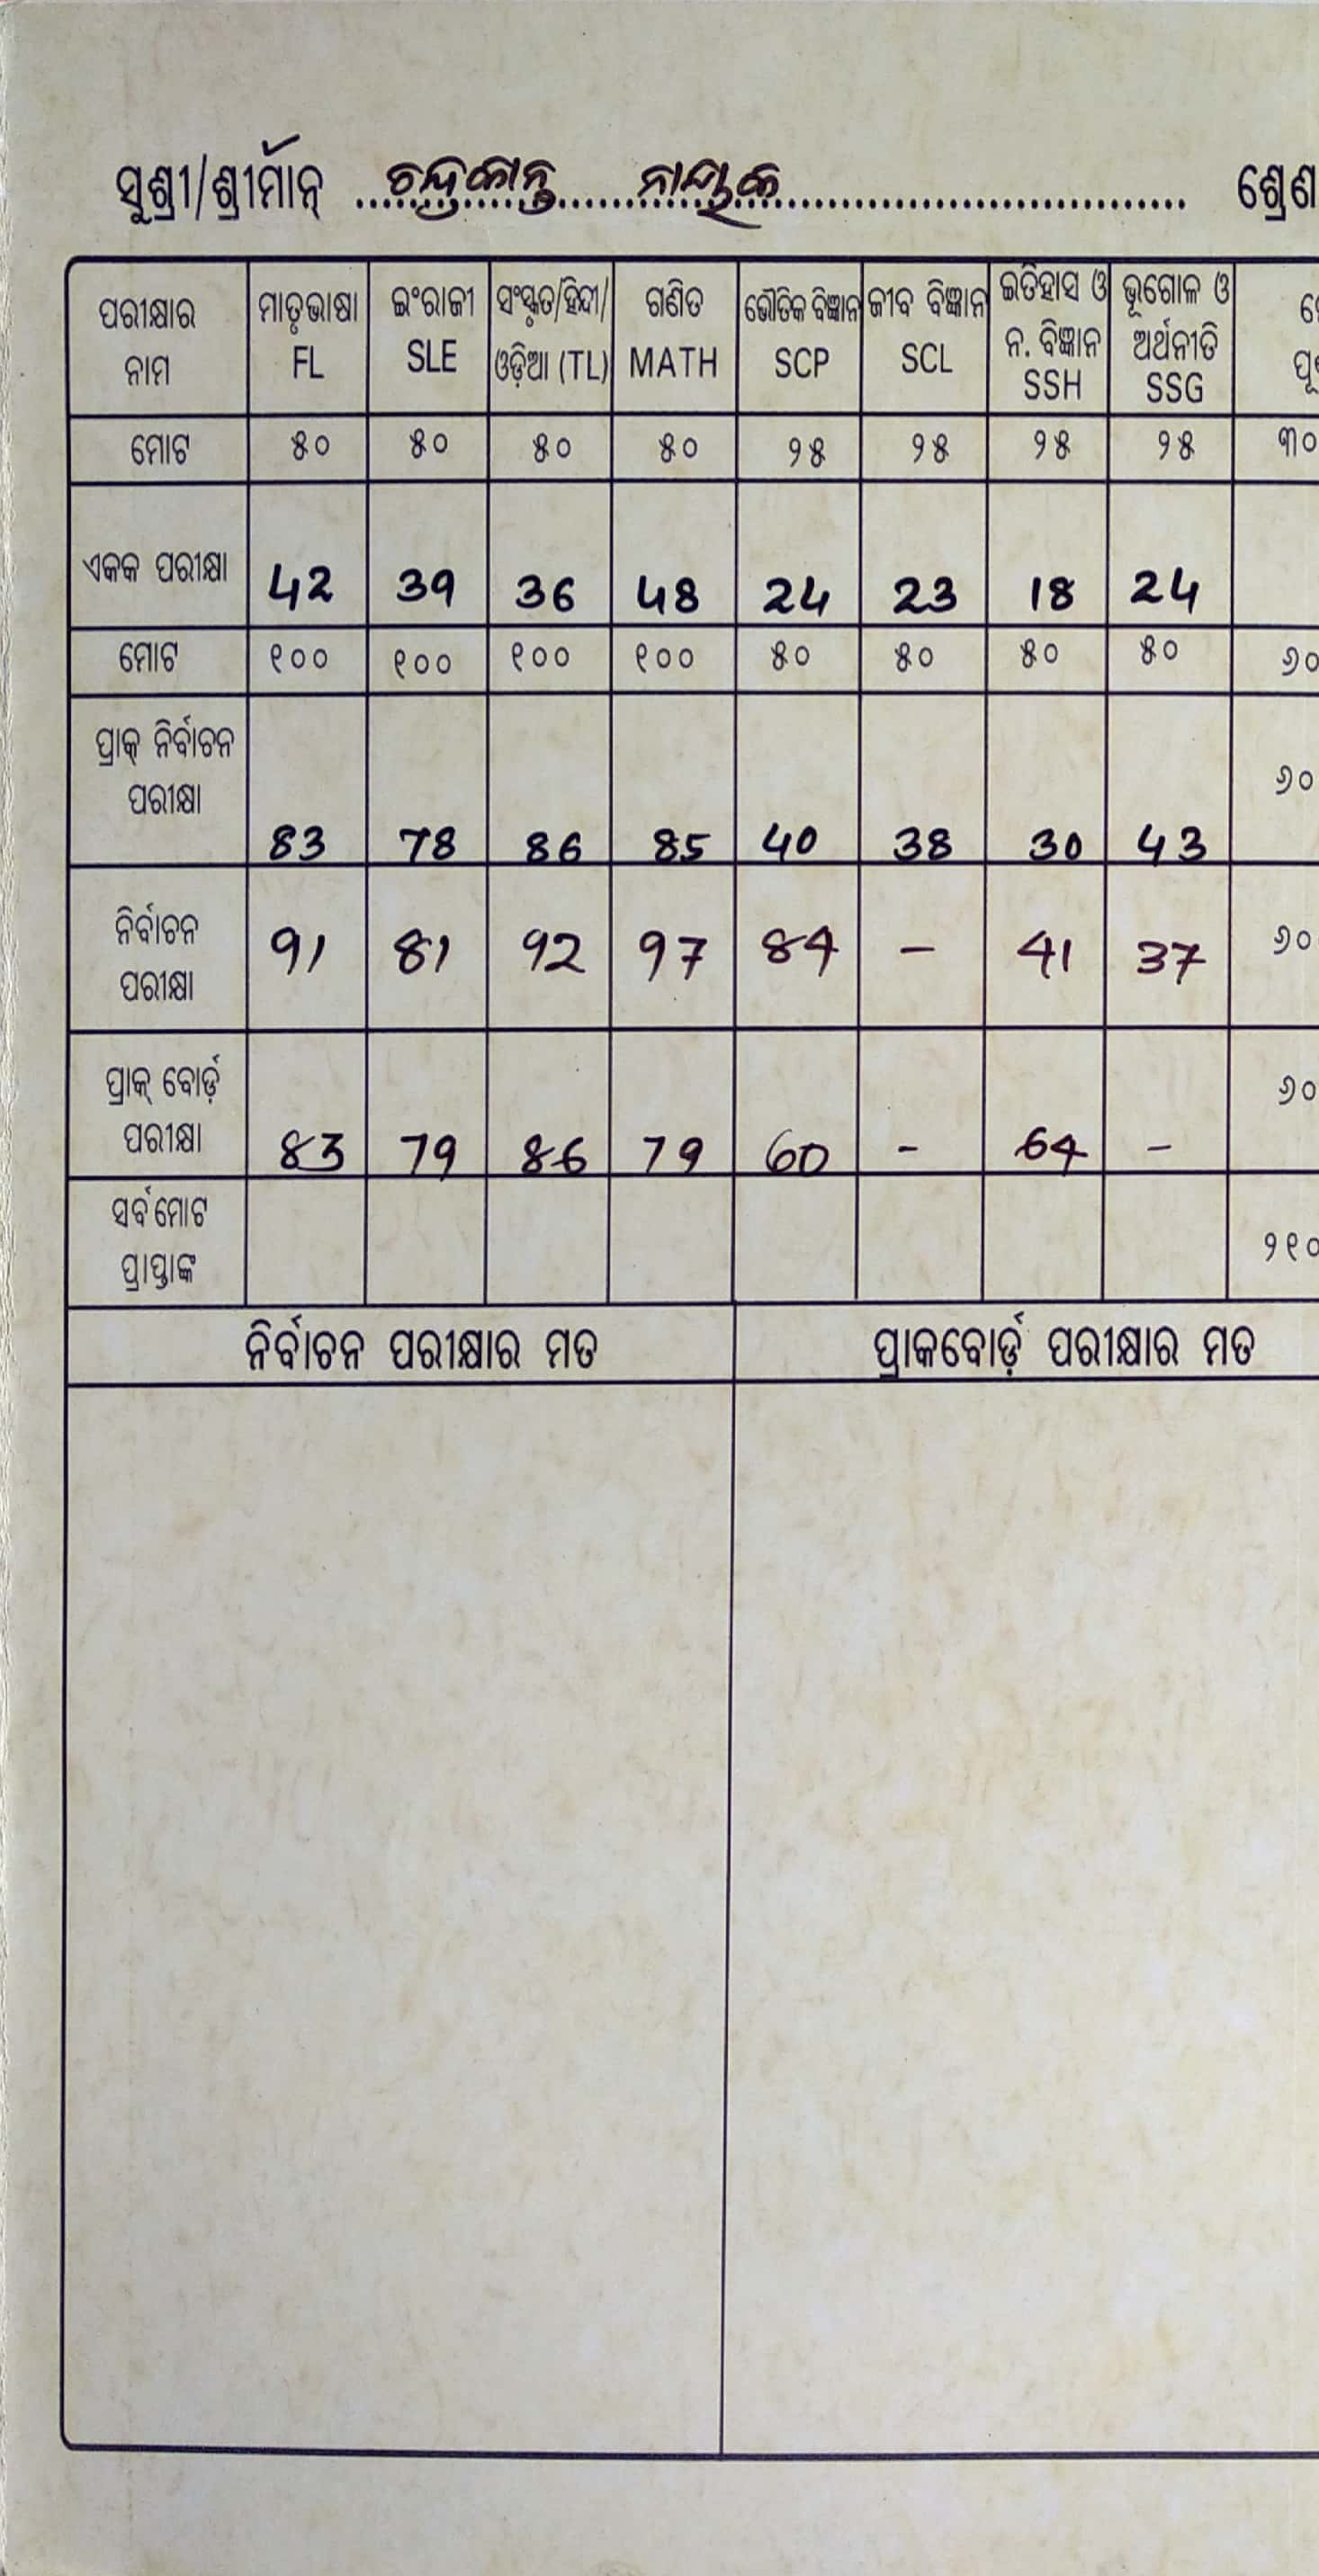 ସୁଶ୍ରୀ/ଶ୍ରୀମାନ୍ ଚନ୍ଦ୍ରକାନ୍ତ ନାୟକ
ପରୀକ୍ଷାର ନାମ ମାତୃଭାଷା FL ଇଂରାଜୀ SLE ସଂସ୍କୃତ/ହିନ୍ଦୀ/ଓଡ଼ିଆ (TL) ଗଣିତ MATH ଭୌତିକ ବିଜ୍ଞାନ SCP ଜୀବ ବିଜ୍ଞାନ SCL ଇତିହାସ ଓ ନ. ବିଜ୍ଞାନ SSH ଭୂଗୋଳ ଓ ଅର୍ଥନୀତି SSG
ମୋଟ ୫୦ ୫୦ ୫୦ ୫୦ ୨୫ ୨୫ ୨୫ ୨୫ ୩୦
ଏକକ ପରୀକ୍ଷା 42 39 36 48 24 23 18 24
ମୋଟ ୧୦୦ ୧୦୦ ୧୦୦ ୧୦୦ ୫୦ ୫୦ ୫୦ ୫୦ ୬୦
ପ୍ରାକ୍ ନିର୍ବାଚନ ପରୀକ୍ଷା 83 78 86 85 40 38 30 43 ୬୦
ନିର୍ବାଚନ ପରୀକ୍ଷା 91 81 92 97 84 - 41 37 ୬୦
ପ୍ରାକ୍ ବୋର୍ଡ଼ ପରୀକ୍ଷା 83 79 86 79 60 - 64 - ୬୦
ସର୍ବମୋଟ ପ୍ରାପ୍ତାଙ୍କ ୨୧୦
ନିର୍ବାଚନ ପରୀକ୍ଷାର ମତ ପ୍ରାକବୋର୍ଡ଼ ପରୀକ୍ଷାର ମତ